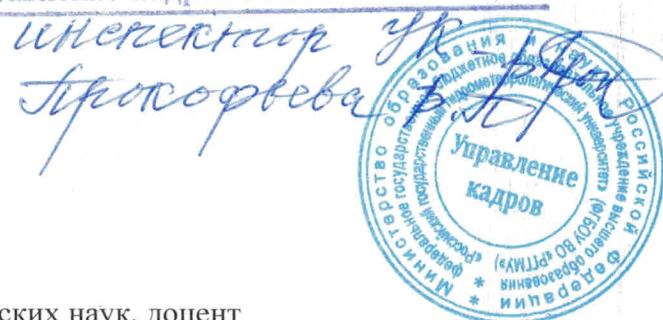 инспектор УК
Прокофьева В.П.
Министерство образования и науки Российской Федерации
федеральное государственное бюджетное образовательное учреждение высшего образования
«Российский государственный гидрометеорологический университет» (ФГБОУ ВО «РГГМУ»)
Управление
кадров
ских наук, доцент